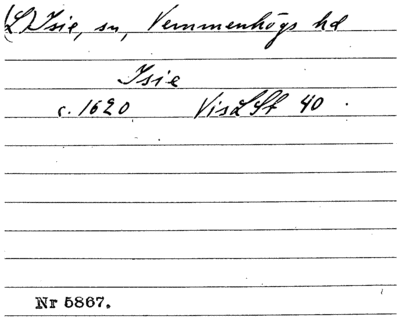 (L) Isie, sn, Vemmenhögs hd
Isie
c. 1620 VisLSt 40.
Nr 5867.